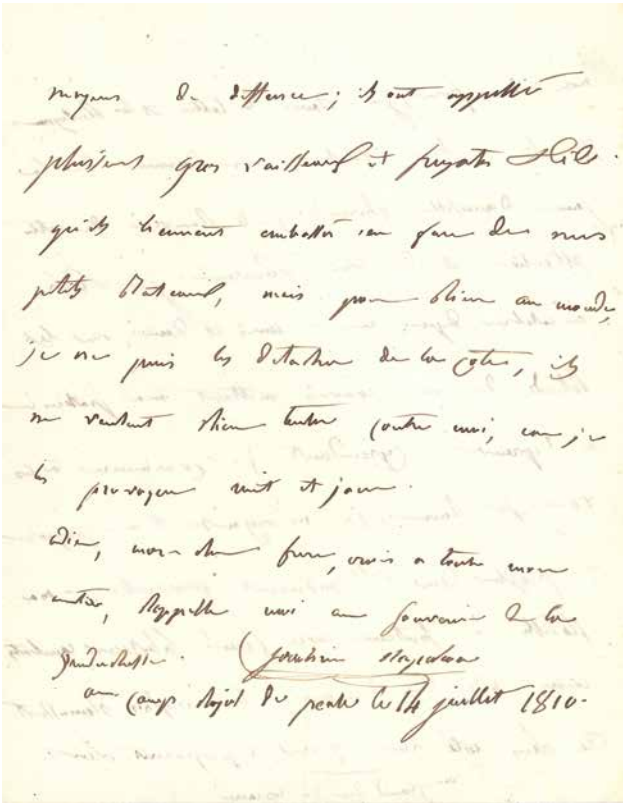 moyens de deffence; ils ont appellé
plusieurs gros vaisseaux et fregates
qu'ils tiennent embossés en face de mes
petits Bateaux, mais pour rien au monde,
je ne puis les détacher de la côte, ils
ne veulent rien tenter contre moi, car je
les provoque nuit et jour.
adieu, mon cher frere, crois a toute mon
amitié, Rappelle moi au souvenir de la
grande duchesse. Joachim Napoleon
au Camp Royal de le 14 juillet 1810.